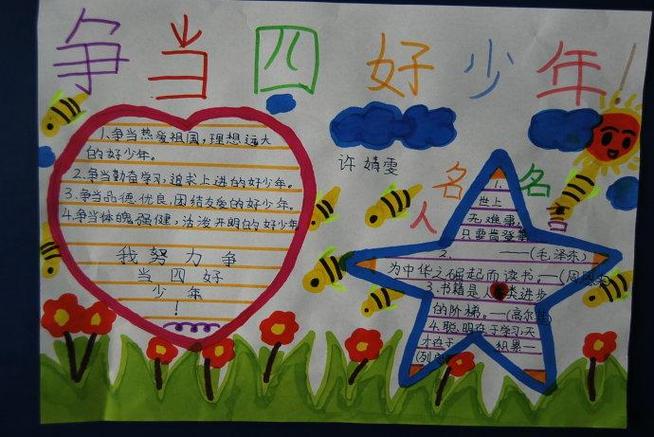 争当四好少年!
1.争当热爱祖国,理想远大
的好少年。
2.争当勤奋学习,追求上进的好少年。
3.争当品德优良,团结友爱的好少年。
4.争当体魄强健,活泼开朗的好少年
我努力争
当四好
少年
!
许婧雯
名人名言
1.
世上
无难事
只要肯登攀
2.——(毛泽东)
为中华之崛起而读书,—(周恩来
3.书籍是人类进步
的阶梯。—(高尔基
4.聪明在于学习,天
才在于 积累—
(列